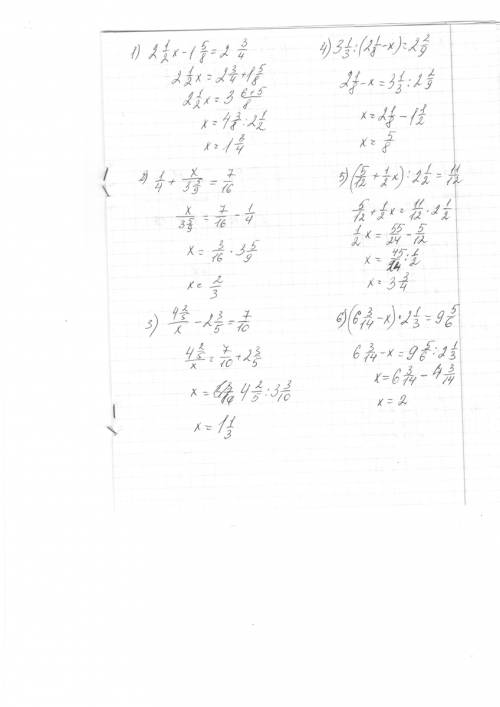 1) 2 1/2 x - 1 5/8 = 2 3/4
2 1/2 x = 2 3/4 + 1 5/8
2 1/2 x = 3 (6+5)/8
x = 4 3/8 : 2 1/2
x = 1 3/4
2) 1/4 + x/(3 5/9) = 7/16
x/(3 5/9) = 7/16 - 1/4
x = 3/16 · 3 5/9
x = 2/3
3) (4 2/5)/x - 2 3/5 = 7/10
(4 2/5)/x = 7/10 + 2 3/5
x = 4 2/5 : 3 3/10
x = 1 1/3
4) 3 1/3 : (2 1/8 - x) = 2 2/9
2 1/8 - x = 3 1/3 : 2 2/9
x = 2 1/8 - 1 1/2
x = 5/8
5) (5/12 + 1/2 x) : 2 1/2 = 11/12
5/12 + 1/2 x = 11/12 · 2 1/2
1/2 x = 55/24 - 5/12
x = 45/24 : 1/2
x = 3 3/4
6) (6 3/14 - x) · 2 1/3 = 9 5/6
6 3/14 - x = 9 5/6 : 2 1/3
x = 6 3/14 - 4 3/14
x = 2